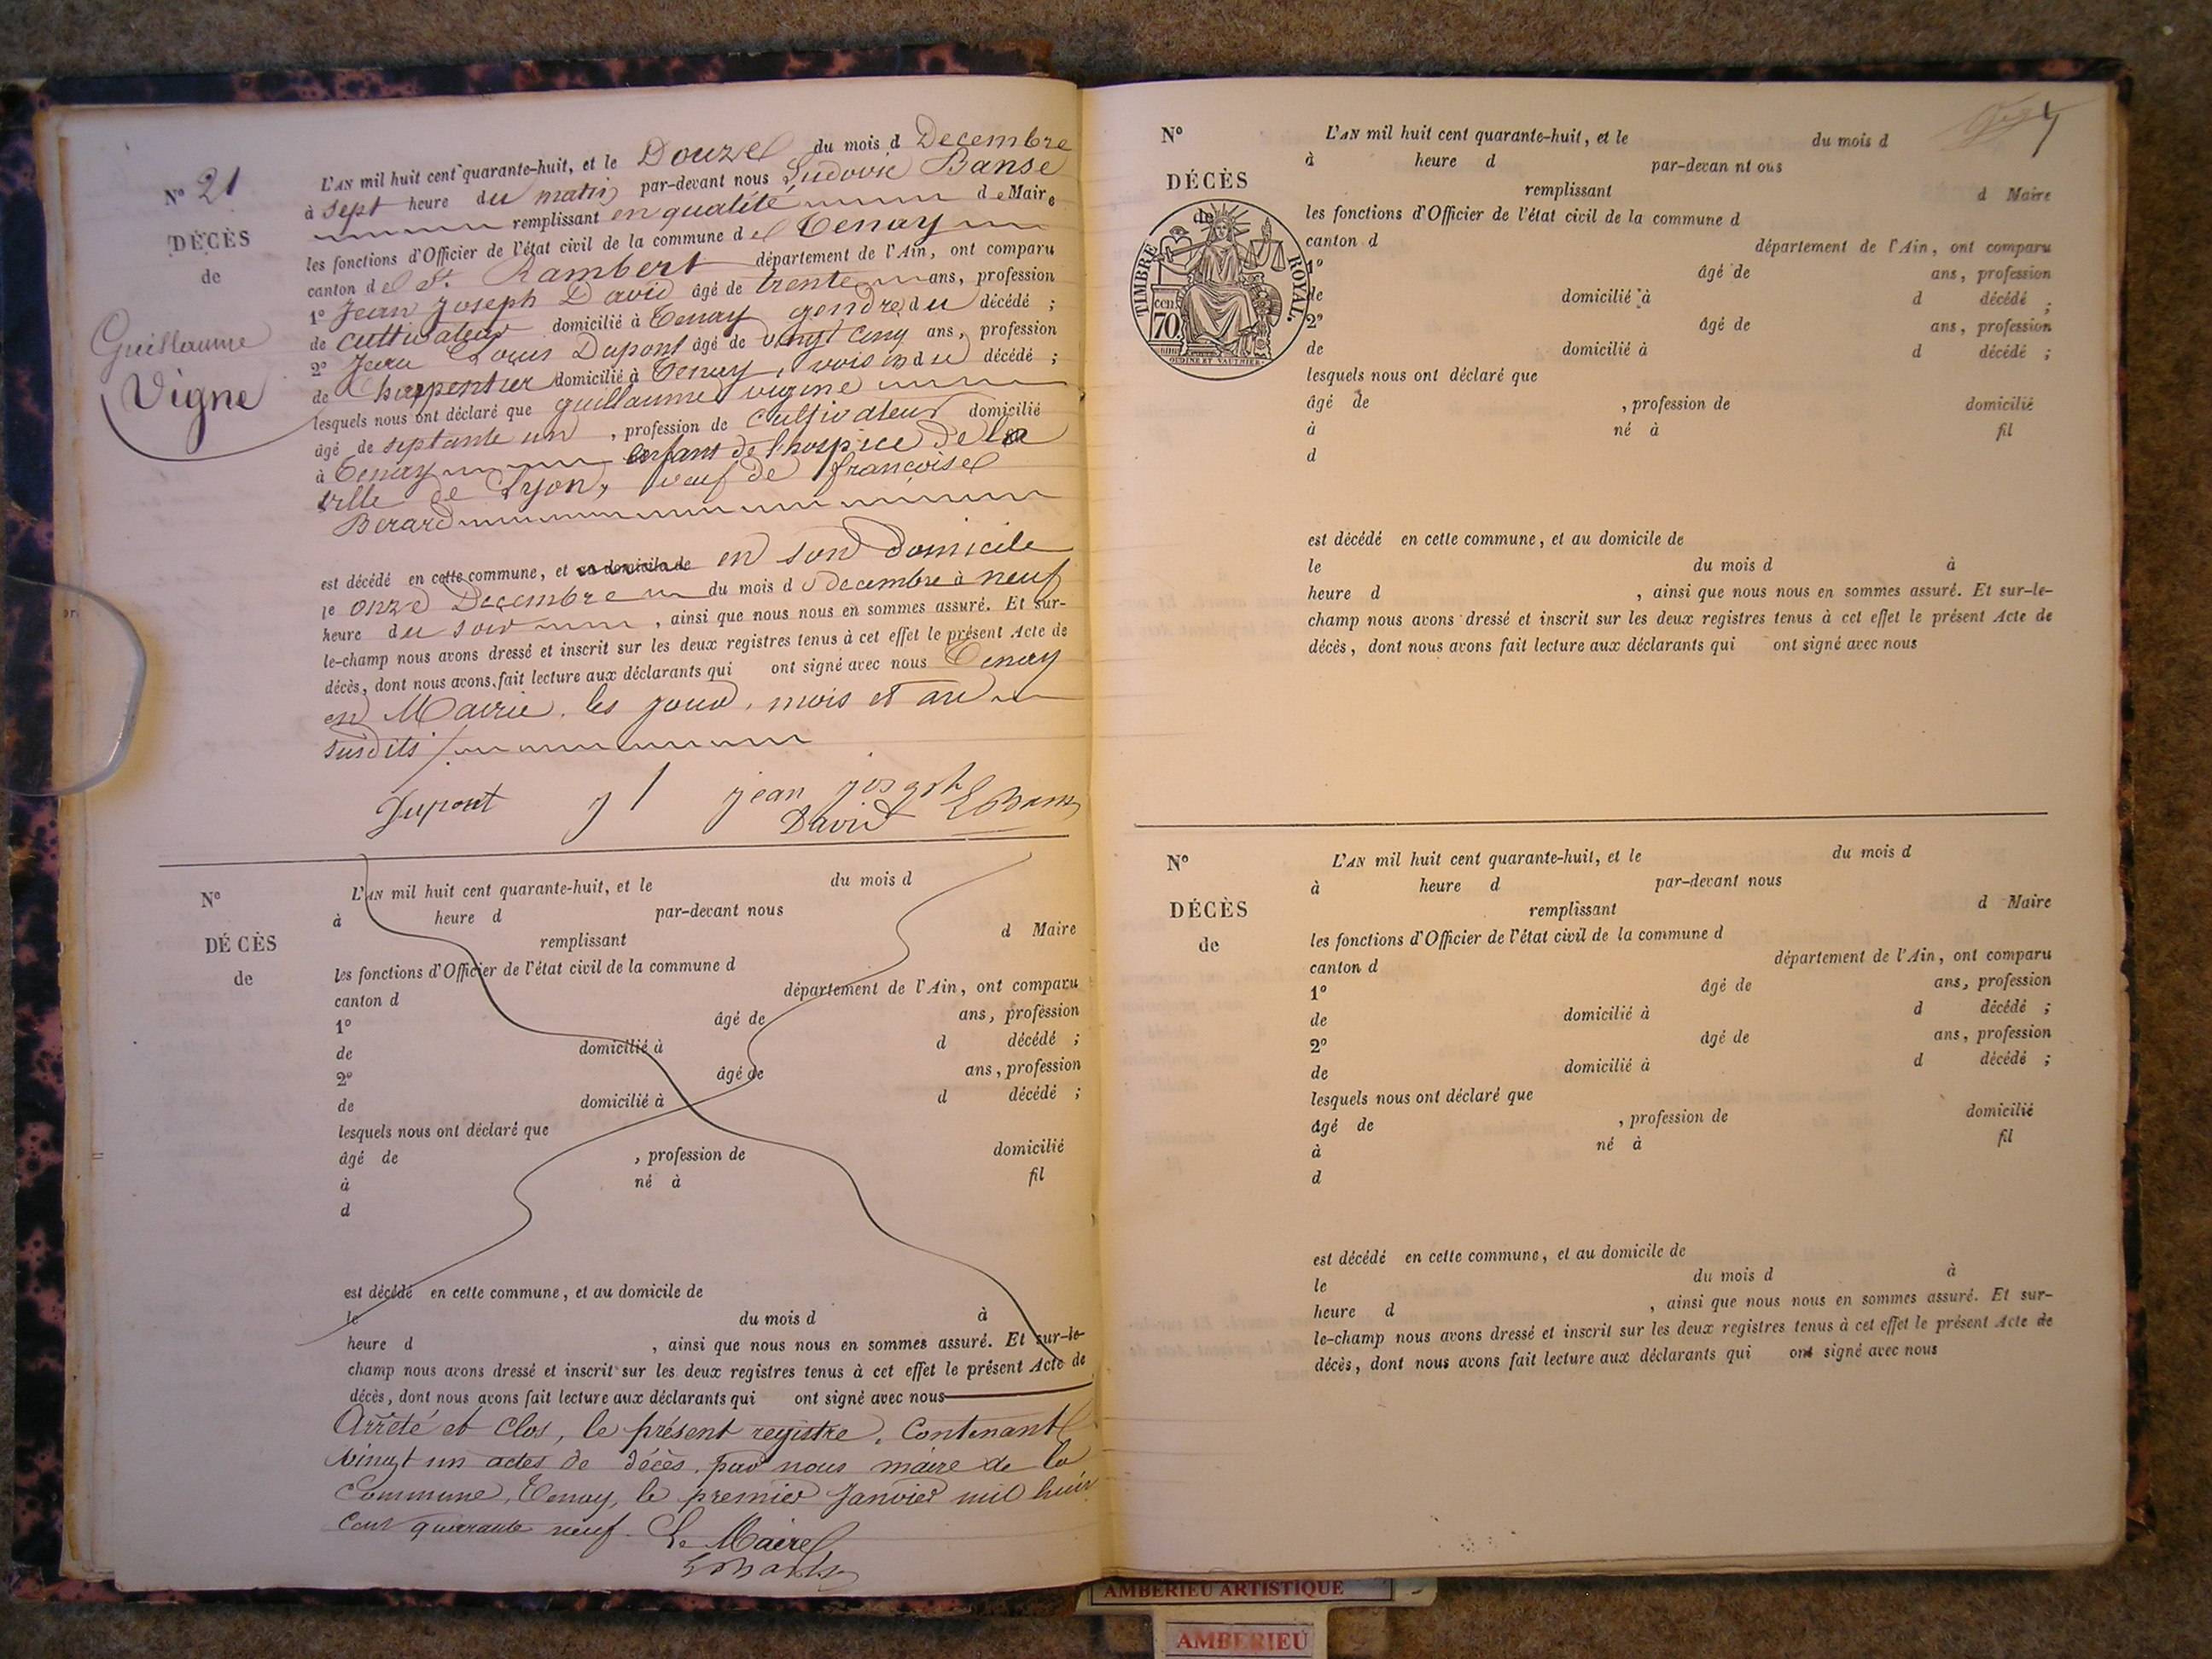 N° 21
DÉCÈS
de
Guillaume
Vigne
L'AN mil huit cent quarante-huit, et le Douze du mois d Decembre
à sept heure du matin par-devant nous Ludovic Banse
remplissant en qualité de Maire
les fonctions d'Officier de l'état civil de la commune de Tenay
canton de St. Rambert département de l'Ain, ont comparu
1° Jean Joseph David âgé de trente ans, profession
de cultivateur domicilié à Tenay gendre du décédé ;
2° Jean Louis Dupont âgé de vingt cinq ans, profession
de Charpentier domicilié à Tenay, voisin du décédé ;
lesquels nous ont déclaré que guillaume vigne
âgé de septante un , profession de Cultivateur domicilié
à Tenay enfant de l'hospice de la
ville de Lyon, veuf de françoise
Berard
est décédé en cette commune, et au domicile de en son domicile
le onze Decembre du mois d decembre à neuf
heure du soir , ainsi que nous nous en sommes assuré. Et sur-
le-champ nous avons dressé et inscrit sur les deux registres tenus à cet effet le présent Acte de
décès, dont nous avons fait lecture aux déclarants qui ont signé avec nous Tenay
en Mairie, les jour, mois et an
susdits
Dupont j l jean joseph
David
N°
DÉCÈS
de
L'AN mil huit cent quarante-huit, et le du mois d
à heure d par-devant nous
remplissant d Maire
les fonctions d'Officier de l'état civil de la commune d
canton d département de l'Ain, ont comparu
1° âgé de ans, profession
de domicilié à d décédé ;
2° âgé de ans, profession
de domicilié à d décédé ;
lesquels nous ont déclaré que
âgé de , profession de domicilié
à né à fil
d
est décédé en cette commune, et au domicile de
le du mois d à
heure d , ainsi que nous nous en sommes assuré. Et sur-le-
champ nous avons dressé et inscrit sur les deux registres tenus à cet effet le présent Acte de
décès, dont nous avons fait lecture aux déclarants qui ont signé avec nous
Arrêté et Clos, le présent registre, Contenant
vingt un actes de décès, par nous maire de la
Commune, Tenay, le premier Janvier mil huit
cent quarante neuf. Le Maire
N°
DÉCÈS
de
TIMBRE ROYAL.
CEN
70
OUDINE ET VAUTHIER
L'AN mil huit cent quarante-huit, et le du mois d
à heure d par-devan nt ous
remplissant d Maire
les fonctions d'Officier de l'état civil de la commune d
canton d département de l'Ain, ont comparu
1° âgé de ans, profession
de domicilié à d décédé ;
2° âgé de ans, profession
de domicilié à d décédé ;
lesquels nous ont déclaré que
âgé de , profession de domicilié
à né à fil
d
est décédé en cette commune, et au domicile de
le du mois d à
heure d , ainsi que nous nous en sommes assuré. Et sur-le-
champ nous avons dressé et inscrit sur les deux registres tenus à cet effet le présent Acte de
décès, dont nous avons fait lecture aux déclarants qui ont signé avec nous
N°
DÉCÈS
de
L'AN mil huit cent quarante-huit, et le du mois d
à heure d par-devant nous
remplissant d Maire
les fonctions d'Officier de l'état civil de la commune d
canton d département de l'Ain, ont comparu
1° âgé de ans, profession
de domicilié à d décédé ;
2° âgé de ans, profession
de domicilié à d décédé ;
lesquels nous ont déclaré que
âgé de , profession de domicilié
à né à fil
d
est décédé en cette commune, et au domicile de
le du mois d à
heure d , ainsi que nous nous en sommes assuré. Et sur-
le-champ nous avons dressé et inscrit sur les deux registres tenus à cet effet le présent Acte de
décès, dont nous avons fait lecture aux déclarants qui ont signé avec nous
AMBERIEU ARTISTIQUE
AMBERIEU